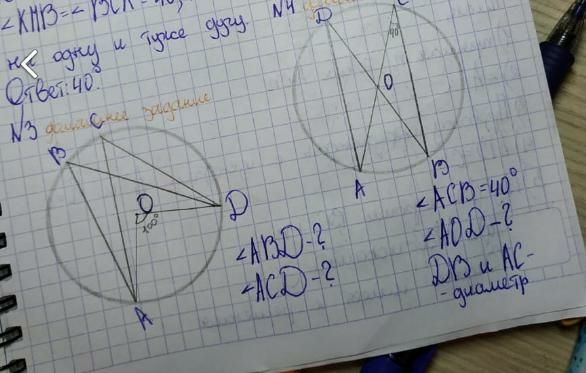 ∠КНВ=∠ВСК=40,
на одну и туже дугу.
Ответ: 40°.
N3 домашнее задание
B
C
O
100°
D
A
∠ABD-?
∠ACD-?
N4
D
C
40°
O
A
B
∠ACB=40°
∠AOD-?
DB и AC-
-диаметр